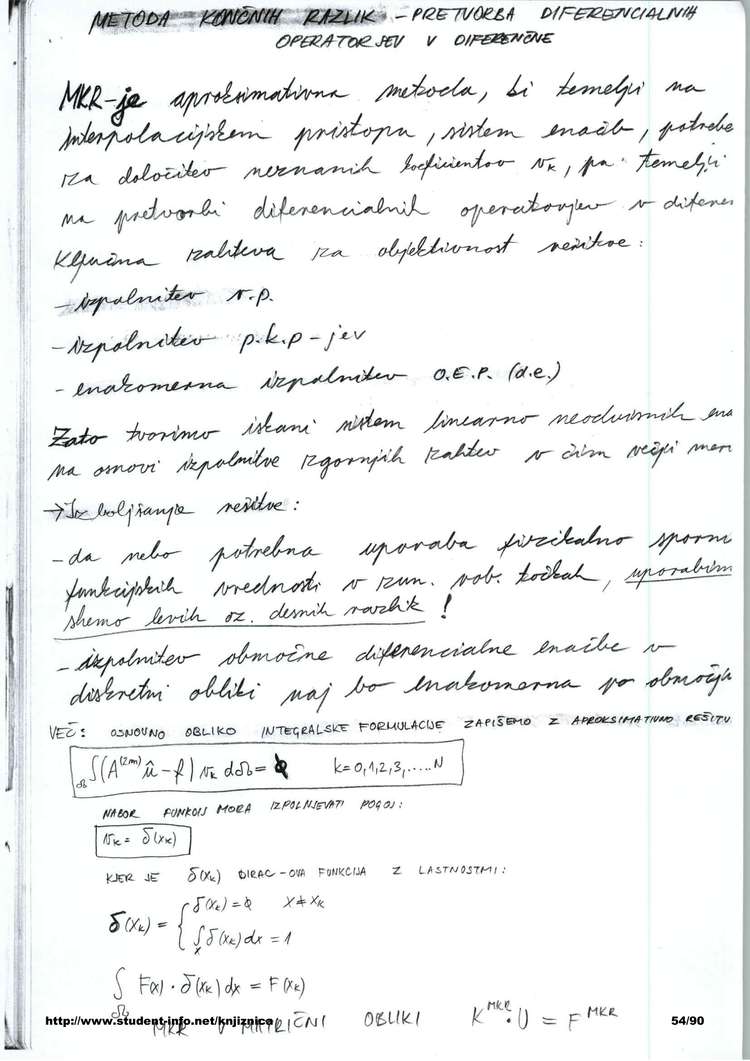 METODA KONČNIH RAZLIK - PRETVORBA DIFERENCIALNIH
OPERATORJEV V DIFERENČNE
MKR-je aproksimativna metoda, ki temelji na
interpolacijskem pristopu, sistem enačb, potrebe
za določitev neznanih koeficientov vk, pa temelji
na pretvorbi diferencialnih operatorjev v diferen
Ključna zahteva za objektivnost rešitve:
- izpolnitev r.p.
- izpolnitev p.k.p - jev
- enakomerna izpolnitev O.E.P. (d.e.)
Zato tvorimo iskani sistem linearno neodvisnih ena
na osnovi izpolnitve zgornjih zahtev v čim večji meri
→ Izboljšanje rešitve:
- da nebo potrebna uporaba fizikalno sporni
funkcijskih vrednosti v zun. rob. točkah, uporabim
shemo levih oz. desnih razlik!
- izpolnitev območne diferencialne enačbe v
diskretni obliki naj bo enakomerna po območju
VEČ: OSNOVNO OBLIKO INTEGRALSKE FORMULACIJE ZAPIŠEMO Z APROKSIMATIVNO REŠITV
∫(A^(2m) û - f) vk dΩ = 0 k = 0,1,2,3,.....N
NABOR FUNKCIJ MORA IZPOLNJEVATI POGOJ:
vk = δ(xk)
KJER JE δ(xk) DIRAC-OVA FUNKCIJA Z LASTNOSTMI:
δ(xk) = { δ(xk) = 0 x ≠ xk
∫x δ(xk) dx = 1
∫Ω F(x) · δ(xk) dx = F(xk)
MKR V MATRIČNI OBLIKI K^MKR · U = F^MKR
http://www.student-info.net/knjiznica 54/90